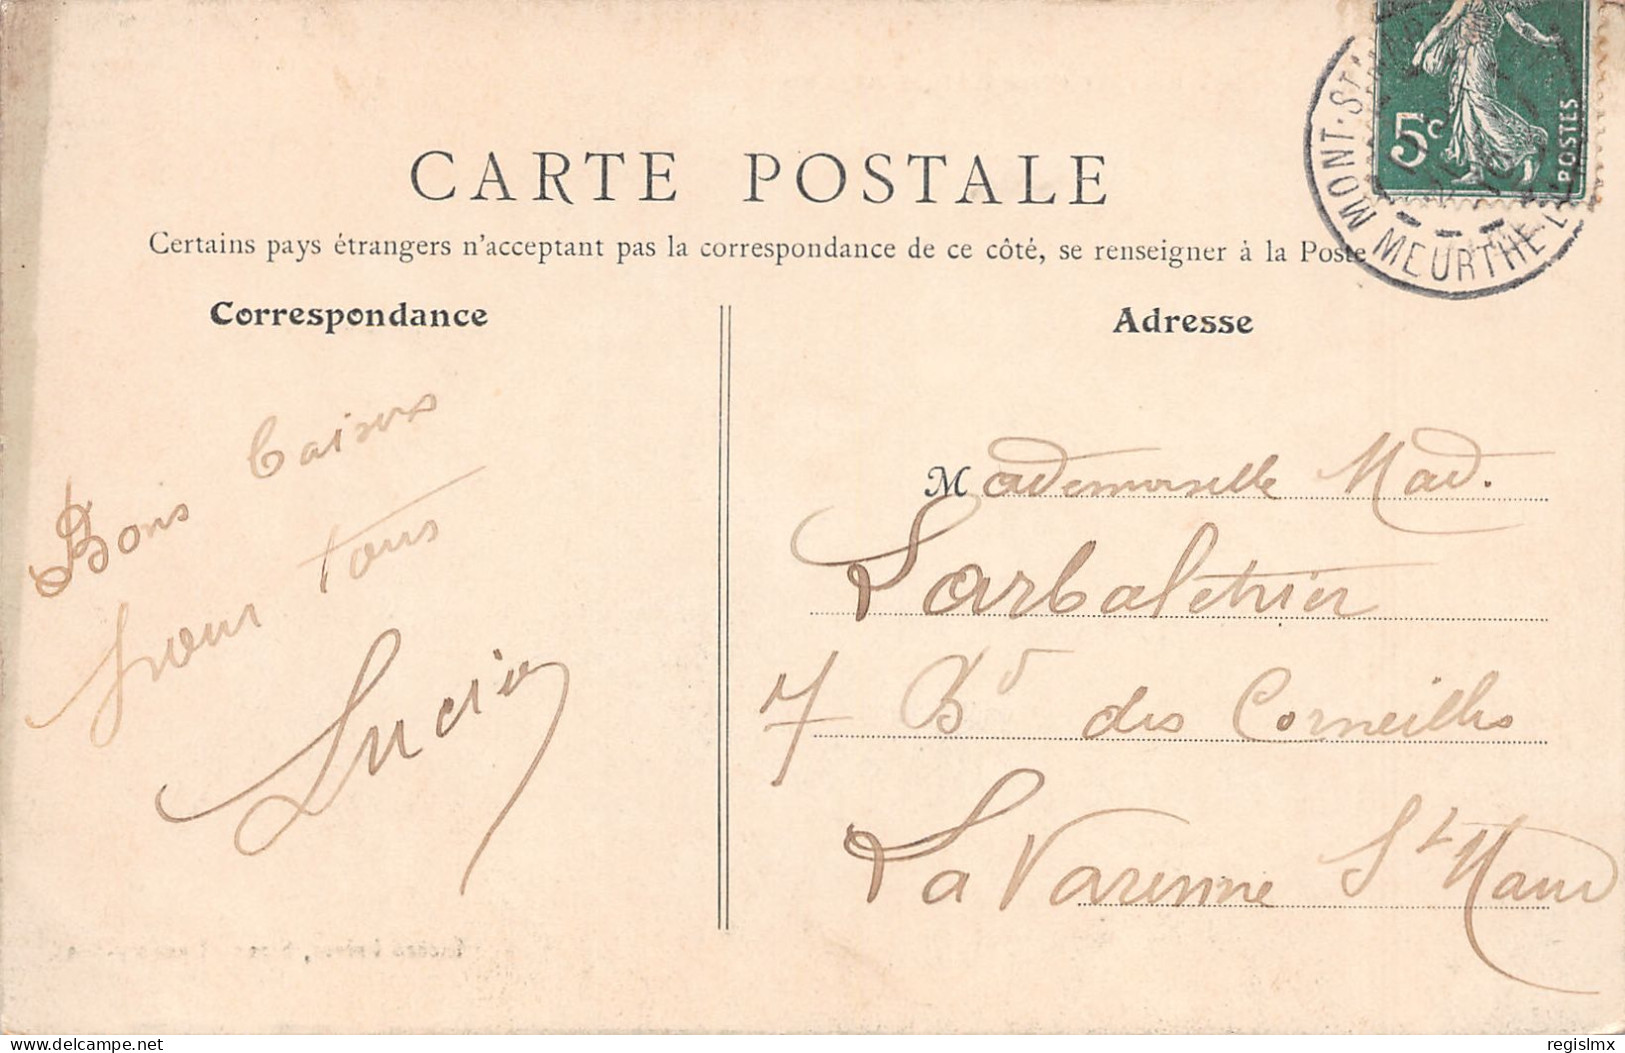 CARTE POSTALE
Certains pays étrangers n'acceptant pas la correspondance de ce côté, se renseigner à la Poste
Correspondance
Bons baisers
pour tous
Lucie
Adresse
Mademoiselle Mad.
Larbaletrier
7 Bd des Corneilles
La Varenne St Maur
5c
POSTES
MONT-ST
MEURTHE
delcampe.net
regislmx